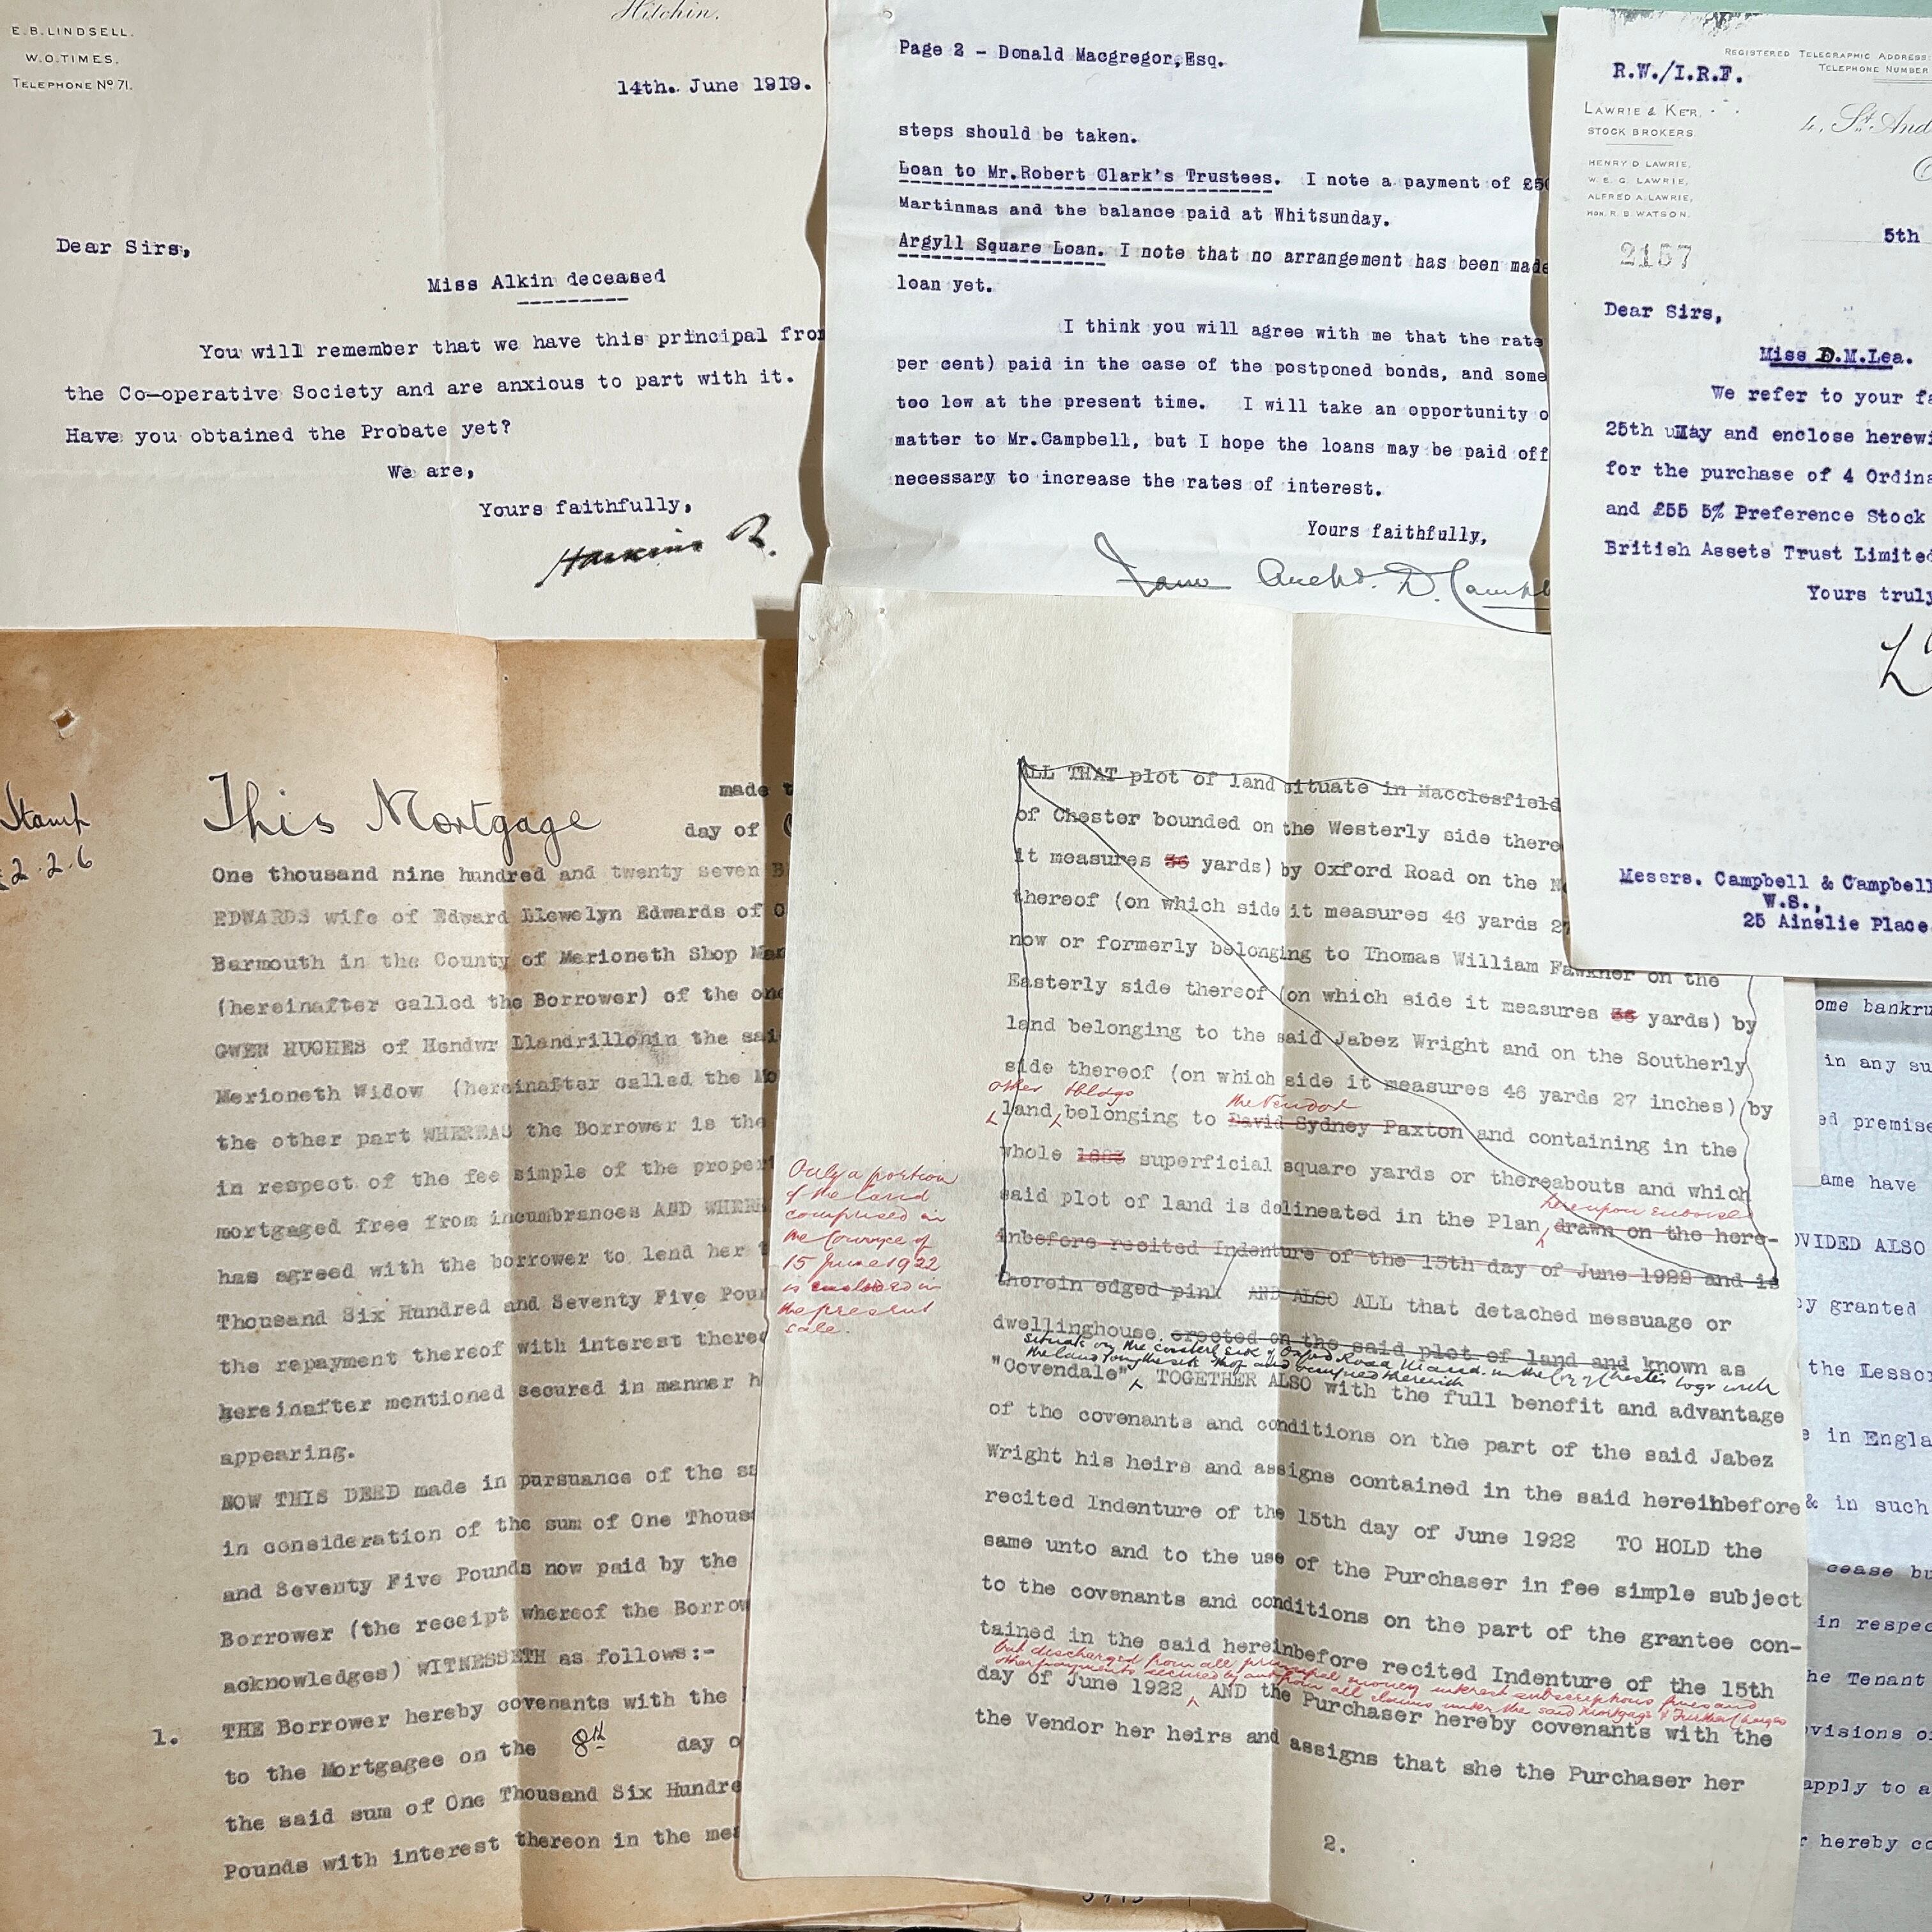 Hitchin.
E.B.LINDSELL.
W.O.TIMES.
TELEPHONE Nº 71.
14th. June 1919.
Dear Sirs,
Miss Alkin deceased
You will remember that we have this principal from
the Co-operative Society and are anxious to part with it.
Have you obtained the Probate yet?
We are,
Yours faithfully,
Page 2 - Donald Macgregor,Esq.
steps should be taken.
Loan to Mr.Robert Clark's Trustees. I note a payment of £50
Martinmas and the balance paid at Whitsunday.
Argyll Square Loan. I note that no arrangement has been made
loan yet.
I think you will agree with me that the rate
per cent) paid in the case of the postponed bonds, and some
too low at the present time. I will take an opportunity o
matter to Mr.Campbell, but I hope the loans may be paid off
necessary to increase the rates of interest.
Yours faithfully,
Archd. D. Campb
REGISTERED TELEGRAPHIC ADDRESS:
TELEPHONE NUMBER
R.W./I.R.F.
LAWRIE & KER,
STOCK BROKERS.
4, St. And
HENRY D LAWRIE,
W. E. G. LAWRIE,
ALFRED A. LAWRIE,
HON. R. B WATSON.
5th
2157
Dear Sirs,
Miss D.M.Lea.
We refer to your fa
25th May and enclose herewi
for the purchase of 4 Ordina
and £55 5% Preference Stock
British Assets Trust Limited
Yours truly
Messrs. Campbell & Campbell
W.S.,
25 Ainslie Place
Stamp
£2.2.6
This Mortgage made t
day of
One thousand nine hundred and twenty seven B
EDWARDS wife of Edward Llewelyn Edwards of
Barmouth in the County of Merioneth Shop Man
(hereinafter called the Borrower) of the one
GWEN HUGHES of Hendwr Llandrillo in the sai
Merioneth Widow (hereinafter called the Mo
the other part WHEREAS the Borrower is the
in respect of the fee simple of the propert
mortgaged free from incumbrances AND WHERE
has agreed with the borrower to lend her
Thousand Six Hundred and Seventy Five Pour
the repayment thereof with interest thereo
hereinafter mentioned secured in manner h
appearing.
NOW THIS DEED made in pursuance of the sa
in consideration of the sum of One Thous
and Seventy Five Pounds now paid by the
Borrower (the receipt whereof the Borrow
acknowledges) WITNESSETH as follows:-
1. THE Borrower hereby covenants with the
to the Mortgagee on the 8th day o
the said sum of One Thousand Six Hundre
Pounds with interest thereon in the mea
ALL THAT plot of land situate in Macclesfield
of Chester bounded on the Westerly side there
it measures 36 yards) by Oxford Road on the No
thereof (on which side it measures 46 yards 27
now or formerly belonging to Thomas William Fawkner on the
Easterly side thereof (on which side it measures 36 yards) by
land belonging to the said Jabez Wright and on the Southerly
side thereof (on which side it measures 46 yards 27 inches) by
other & bldgs the Vendor
land belonging to David Sydney Paxton and containing in the
whole 1683 superficial square yards or thereabouts and which
hereupon endorsed
said plot of land is delineated in the Plan drawn on the here-
inbefore recited Indenture of the 15th day of June 1922 and is
therein edged pink AND ALSO ALL that detached messuage or
dwellinghouse erected on the said plot of land and known as
situate on the easterly side of Oxford Road in the Co of Chester togr with
the land thereto and occupied therewith
"Oovendale" TOGETHER ALSO with the full benefit and advantage
of the covenants and conditions on the part of the said Jabez
Wright his heirs and assigns contained in the said hereinbefore
recited Indenture of the 15th day of June 1922 TO HOLD the
same unto and to the use of the Purchaser in fee simple subject
to the covenants and conditions on the part of the grantee con-
tained in the said hereinbefore recited Indenture of the 15th
but discharged from all principal money interest subscriptions fines and
other payments secured by and from all claims under the said Mortgage & Further Charges
day of June 1922 AND the Purchaser hereby covenants with the
the Vendor her heirs and assigns that she the Purchaser her
2.
Only a portion
of the land
comprised in
the Convyce of
15 June 1922
is included in
the present
sale.
ome bankru
in any su
ed premise
ame have
OVIDED ALSO
by granted
the Lessor
e in Engla
& in such
cease bu
in respec
he Tenant
ovisions o
apply to a
r hereby co